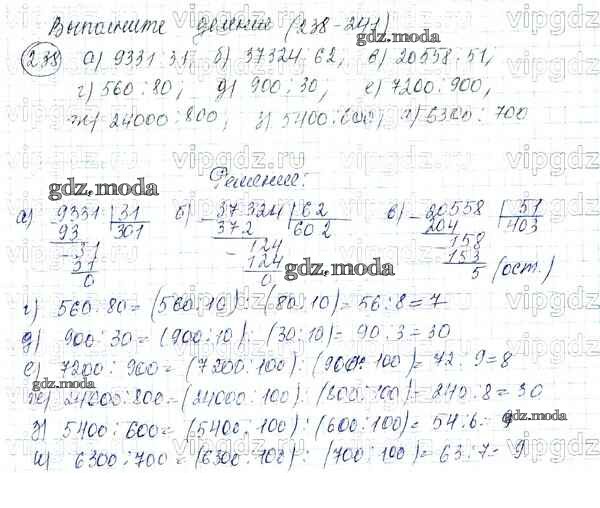 Выполните деление (238-241)
238 а) 9331:31 б) 37324:62, в) 20558:51,
г) 560:80, д) 900:30, е) 7200:900,
ж) 24000:800, з) 5400:600, и) 6300:700
Решение:
gdz.moda
а) 9331 | 31 б) 37324 | 62 в) 20558 | 51
93 301 372 602 204 403
31 124 158
31 124 153
0 0 5 (ост.)
gdz.moda
г) 560:80=(560:10):(80:10)=56:8=7
д) 900:30=(900:10):(30:10)=90:3=30
е) 7200:900=(7200:100):(900:100)=72:9=8
ж) 24000:800=(24000:100):(800:100)=240:8=30
з) 5400:600=(5400:100):(600:100)=54:6=9
и) 6300:700=(6300:100):(700:100)=63:7=9
gdz.moda
vipgdz.ru